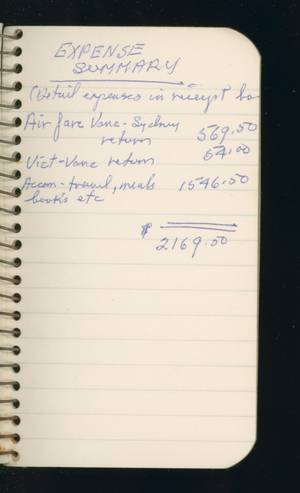 EXPENSE
SUMMARY
(Detail expenses in receipt bo
Air fare Vanc-Sydney
return 569.50
Vict-Vanc return 54.00
Accom-travel, meals 1546.50
books etc
$ 2169.50